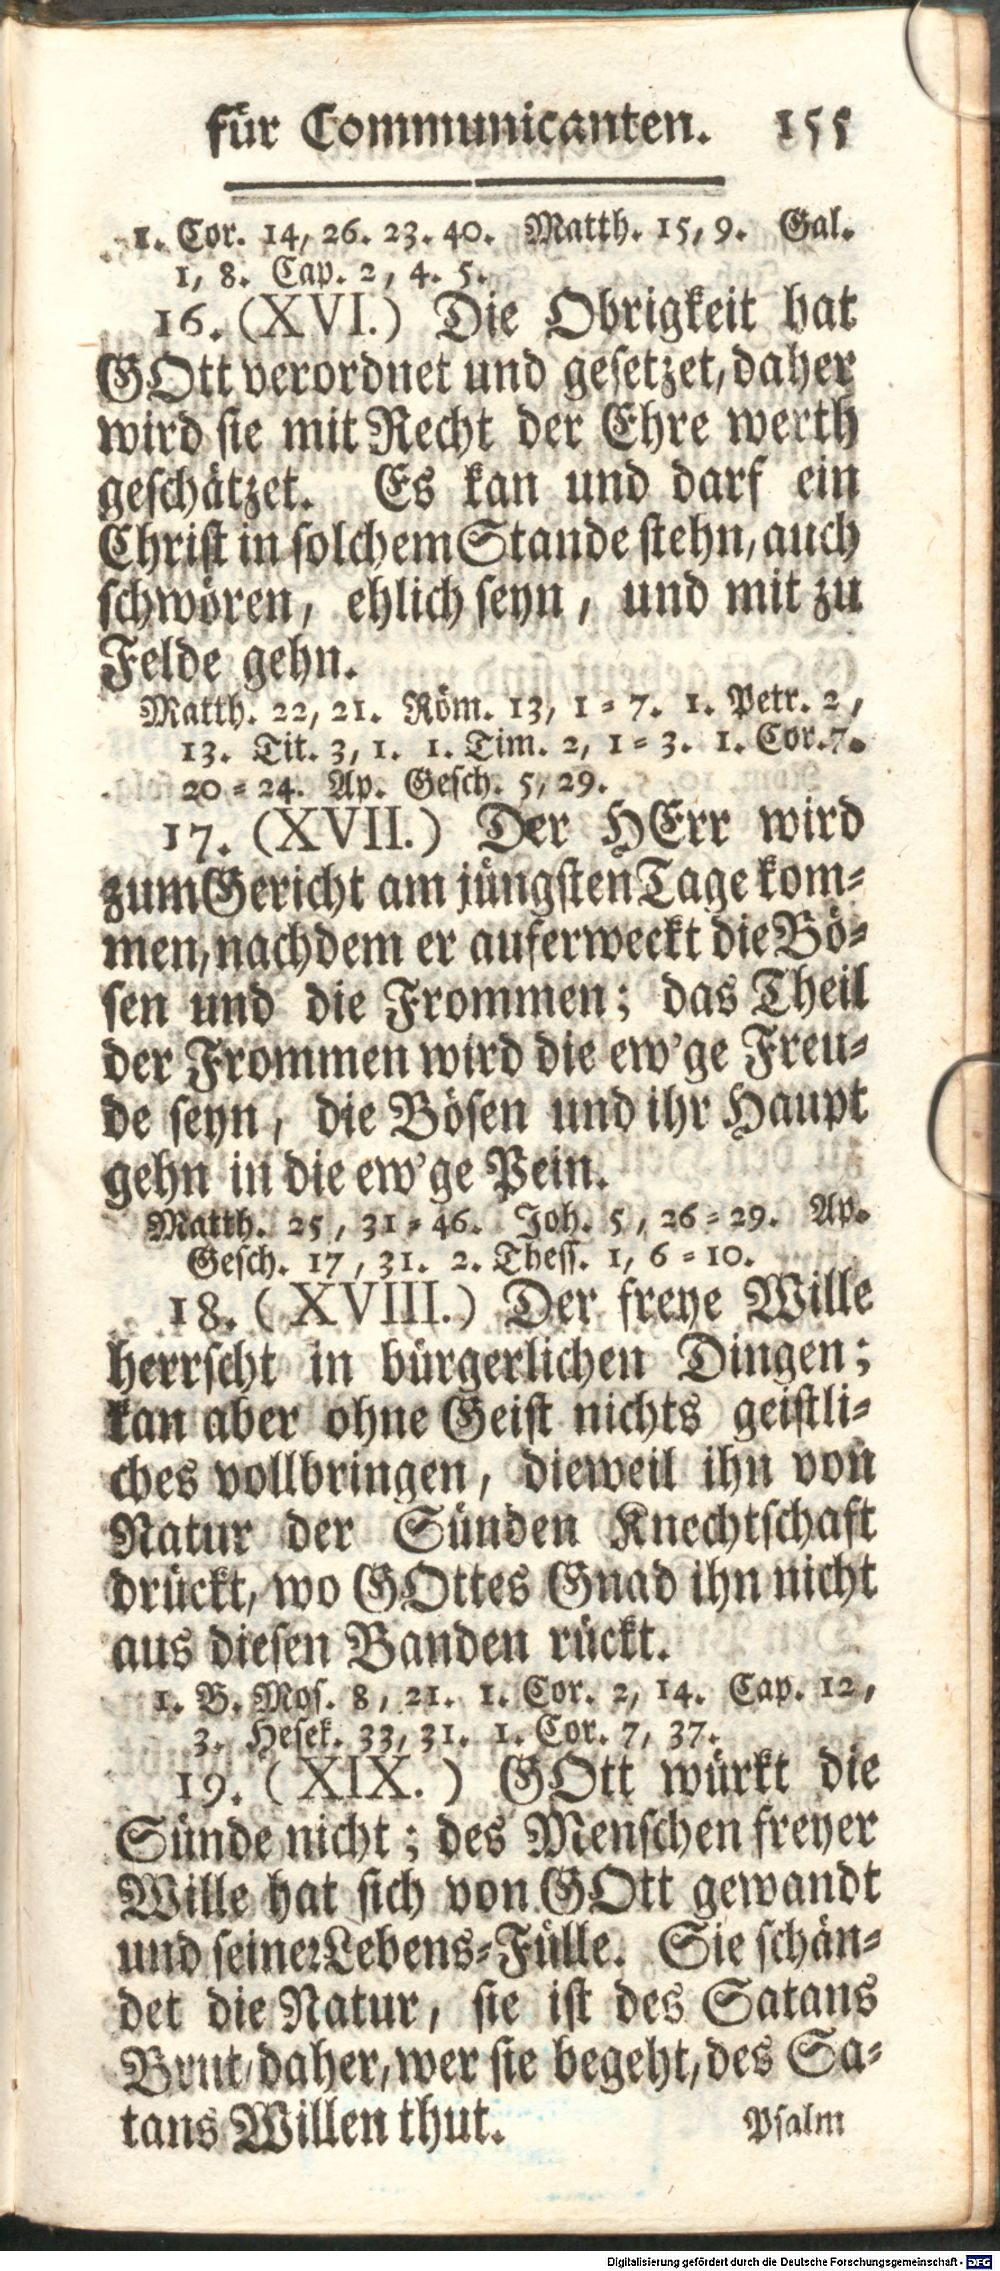 für Communicanten. 155
1. Cor. 14, 26. 23. 40. Matth. 15, 9. Gal.
1, 8. Cap. 2, 4. 5.
16. (XVI.) Die Obrigkeit hat
GOtt verordnet und gesetzet, daher
wird sie mit Recht der Ehre werth
geschätzet. Es kan und darf ein
Christ in solchem Stande stehn, auch
schwören, ehlich seyn, und mit zu
Felde gehn.
Matth. 22, 21. Röm. 13, 1=7. 1. Petr. 2,
13. Tit. 3, 1. 1. Tim. 2, 1=3. 1. Cor. 7.
20=24. Ap. Gesch. 5, 29.
17. (XVII.) Der HErr wird
zum Gericht am jüngsten Tage kom=
men, nachdem er auferweckt die Bö=
sen und die Frommen; das Theil
der Frommen wird die ew'ge Freu=
de seyn, die Bösen und ihr Haupt
gehn in die ew'ge Pein.
Matth. 25, 31=46. Joh. 5, 26=29. Ap.
Gesch. 17, 31. 2. Thess. 1, 6=10.
18. (XVIII.) Der freye Wille
herrscht in bürgerlichen Dingen;
kan aber ohne Geist nichts geistli=
ches vollbringen, dieweil ihn von
Natur der Sünden Knechtschaft
drückt, wo GOttes Gnad ihn nicht
aus diesen Banden rückt.
1. B. Mos. 8, 21. 1. Cor. 2, 14. Cap. 12,
3. Hesek. 33, 31. 1. Cor. 7, 37.
19. (XIX.) GOtt würkt die
Sünde nicht; des Menschen freyer
Wille hat sich von GOtt gewandt
und seiner Lebens=Fülle. Sie schän=
det die Natur, sie ist des Satans
Brut, daher, wer sie begeht, des Sa=
tans Willen thut. Psalm
Digitalisierung gefördert durch die Deutsche Forschungsgemeinschaft - DFG